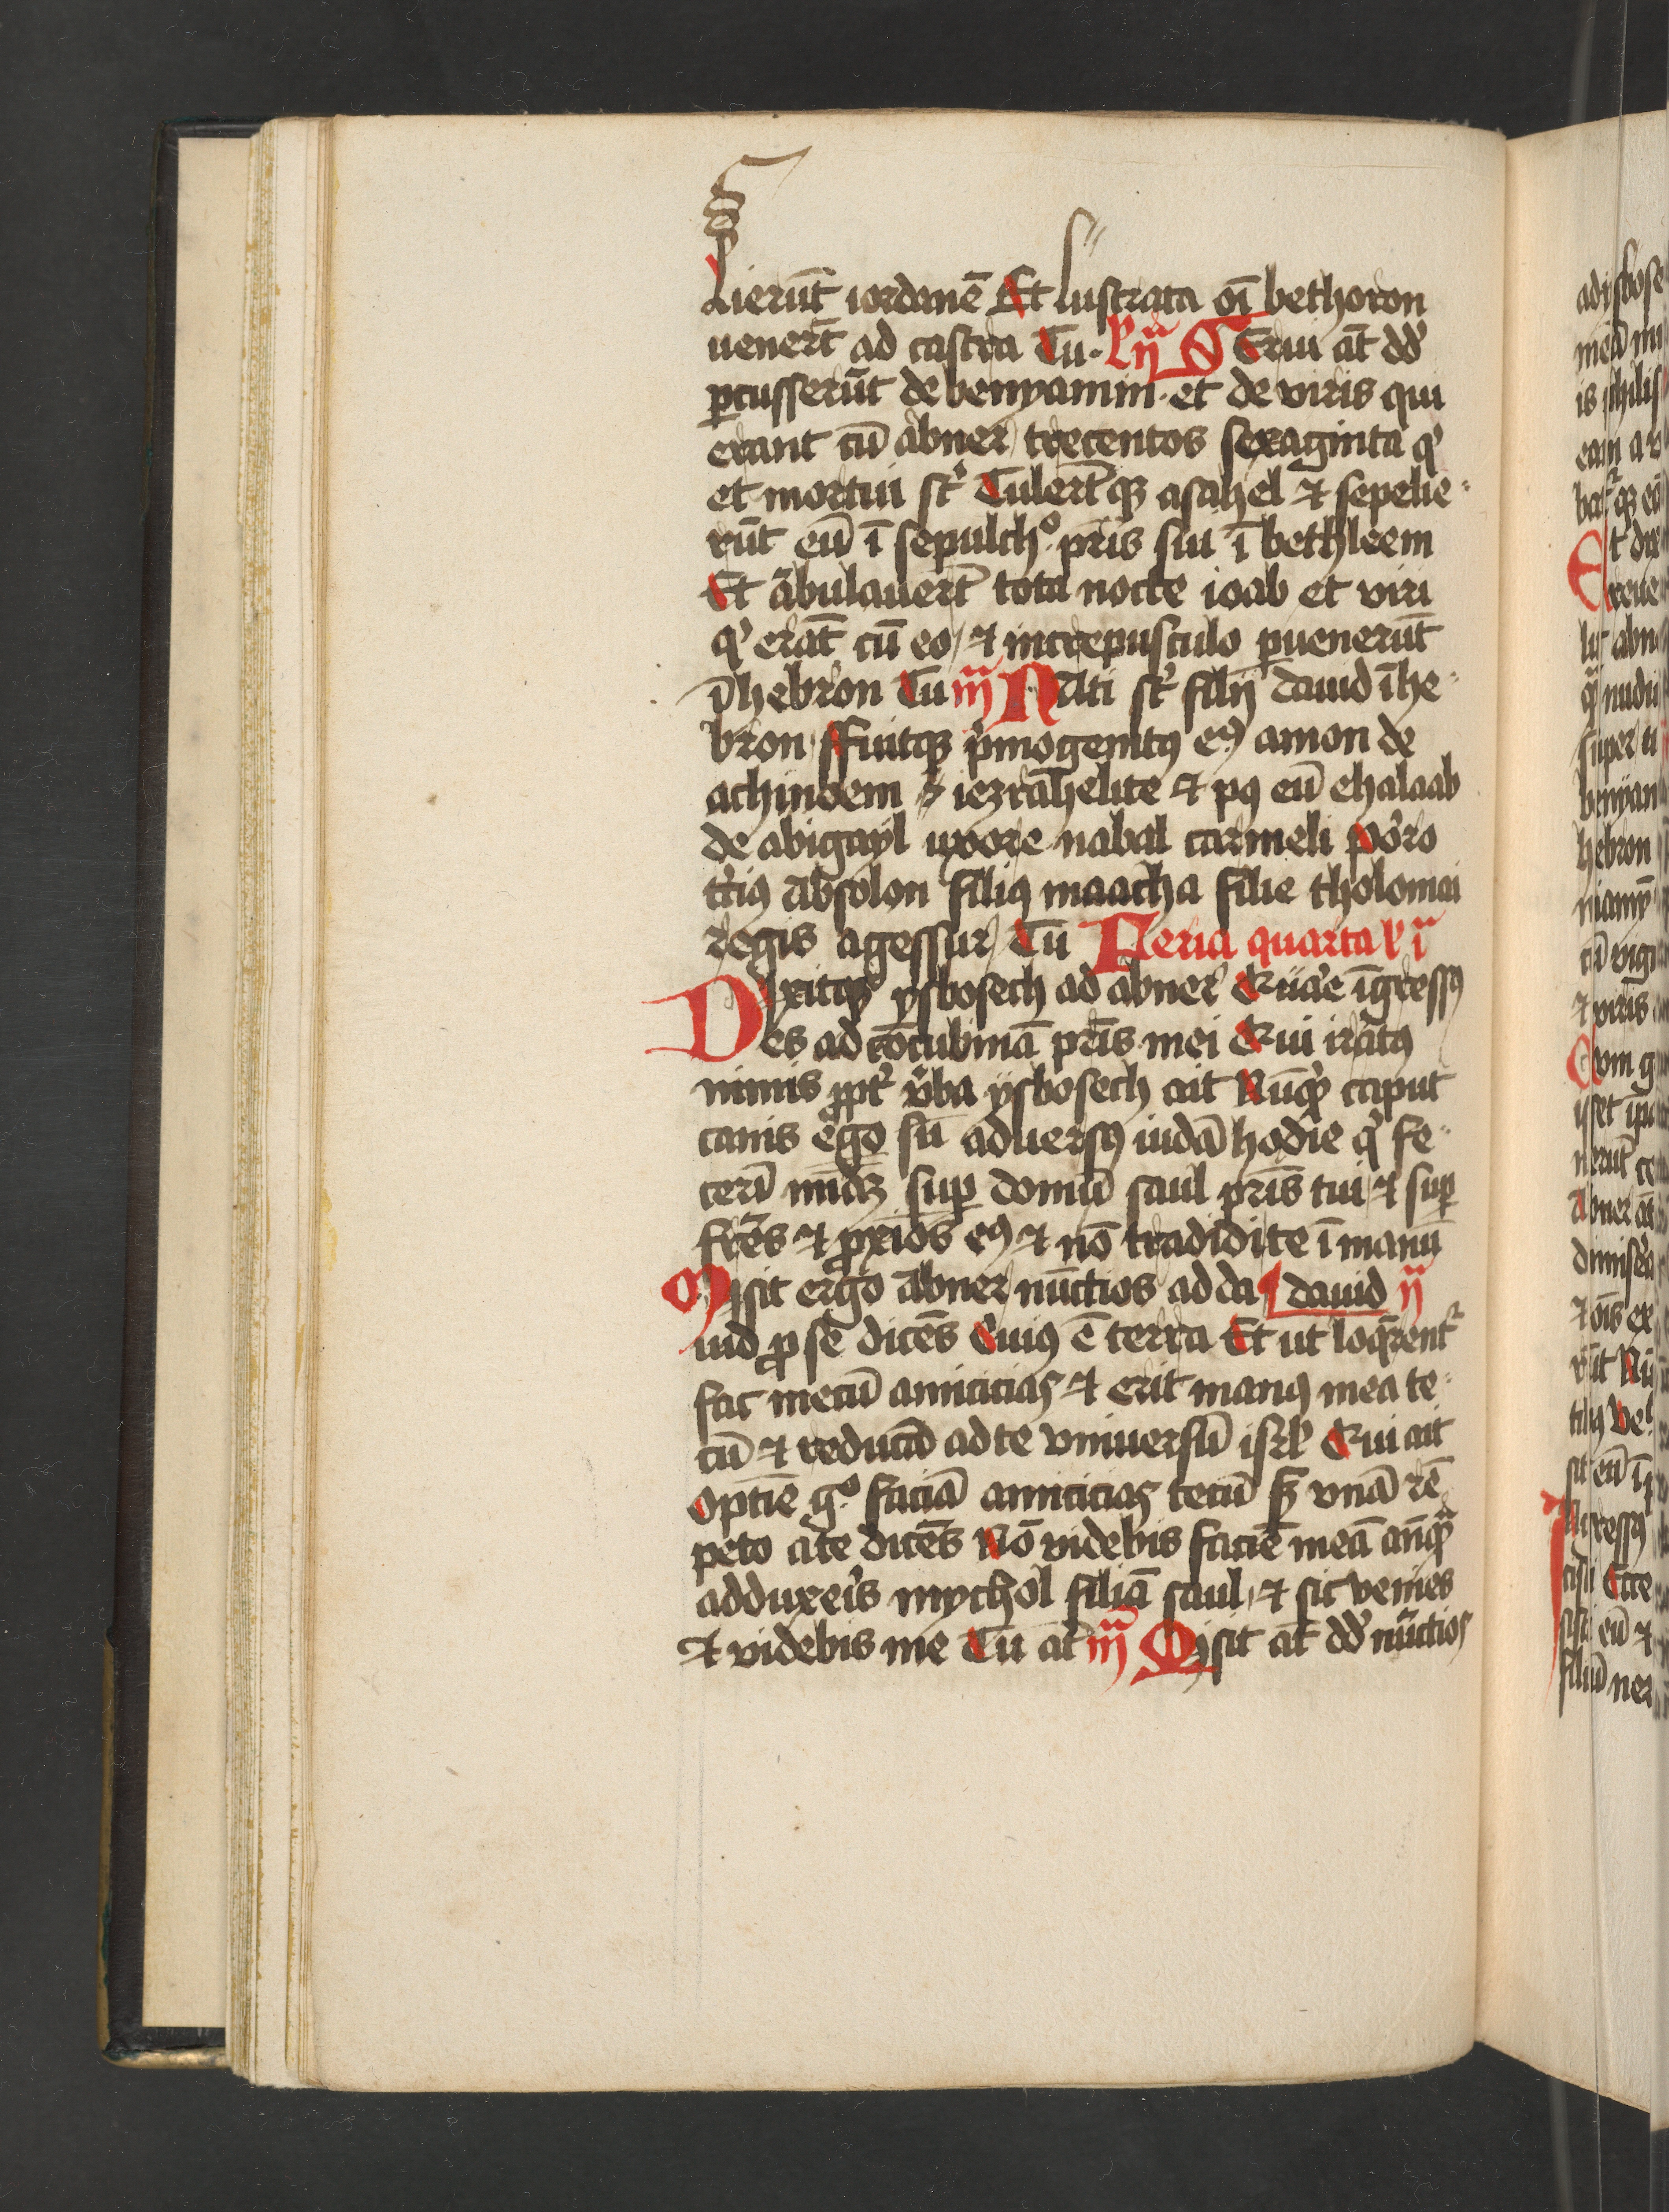 sierūt iordanē Et lustrata oī bethoron
uenert̄ ad castra Tu. L ij^a SErui at̄ dd
ꝑcusserūt de benyamin et de viris qui
erant cū abner trecentos sexaginta q^i
et mortui st̄ Tulert̄qꝫ asahel ⁊ sepelie
rūt eū ī sepulch^o p̄ris sui ī bethleem
Et ābulauert̄ tota nocte ioab et viri
q^i erāt cū eo ⁊ in crepusculo ꝑuenerūt
ī hebron Tu iij^a NAti st̄ filij dauid ī he
bron ffuitqꝫ p^imogenitꝯ eꝯ amon de
achinoem iezrahelite ⁊ pꝯ eū chalaab
de abigayl uxore nabal carmeli poro
t^ciꝯ absolon filiꝯ maacha filie tholomai
regis agessur Tu Feria quarta l i^a
Dixitqꝫ ysbosech ad abner Quare īgressꝯ
es ad cōcubinā p̄ris mei Qui iratꝯ
nimis ꝓpt̄ v̄ba ysbosech ait Nūq^d caput
canis ego sū aduersꝯ iudā hodie q^i fe
cerī mīaꝫ suꝑ domū saul p̄ris tui ⁊ suꝑ
fr̄es ⁊ ꝓxīos eꝯ ⁊ nō tradidi te ī manū
Misit ergo abner nūctios ad da ¶ dauid ij^a
uid ꝓ se dicēs Cuiꝯ ē terra Et ut loq̄rent^r
fac mecū amicicias ⁊ erit manꝯ mea te
cū ⁊ reducā ad te vniuersū isrl̄ Qui ait
Optīe g^o faciā amicicias tecū sꝫ vnā rē
peto a te dicēs Nō videbis faciē meā anq^a
adduxeris mychol filiā saul ⁊ sic venies
⁊ videbis me Tu at̄ iij^a Misit at̄ dd nūctios